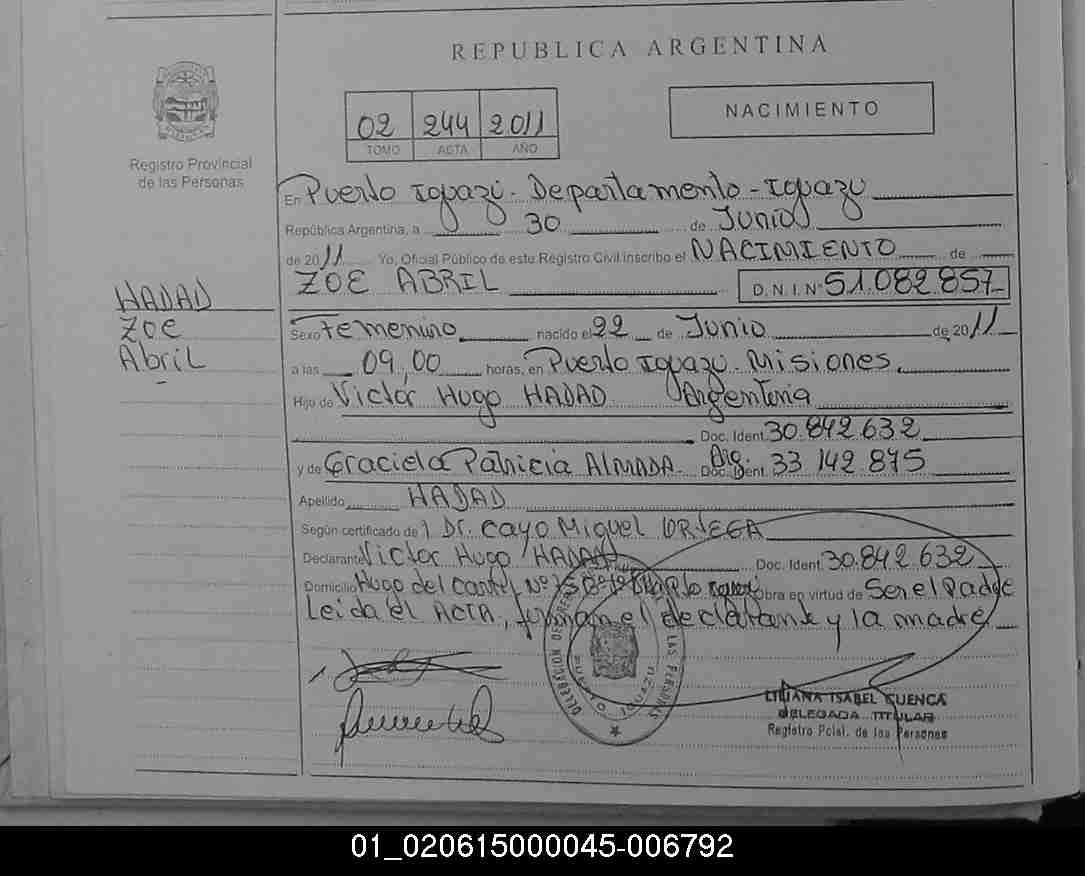 REPUBLICA ARGENTINA
Registro Provincial
de las Personas
02 244 2011
TOMO ACTA AÑO
NACIMIENTO
En Puerto Iguazú - Departamento - Iguazú
República Argentina, a 30 de Junio
de 2011 Yo, Oficial Público de este Registro Civil inscribo el NACIMIENTO de
ZOE ABRIL D.N.I. Nº 51.082.857
HADAD
ZOE
Abril
Sexo Femenino nacido el 22 de Junio de 2011
a las 09,00 horas, en Puerto Iguazú. Misiones,
Hijo de Victor Hugo HADAD Argentina
Doc. Ident. 30.842.632
y de Graciela Patricia ALMADA Arg. Doc. Ident. 33 142 875
Apellido HADAD
Según certificado de Dr. Cayo Miguel ORTEGA
Declarante Victor Hugo HADAD Doc. Ident. 30.842.632
Domicilio Hugo del Nº Pto Iguazú Obra en virtud de Ser el Padre
Leida el ACTA, firman el declarante y la madre
DELEGACION DE LAS PERSONAS
PUERTO IGUAZU
LILIANA ISABEL CUENCA
DELEGADA TITULAR
Registro Pcial. de las Personas
01_020615000045-006792